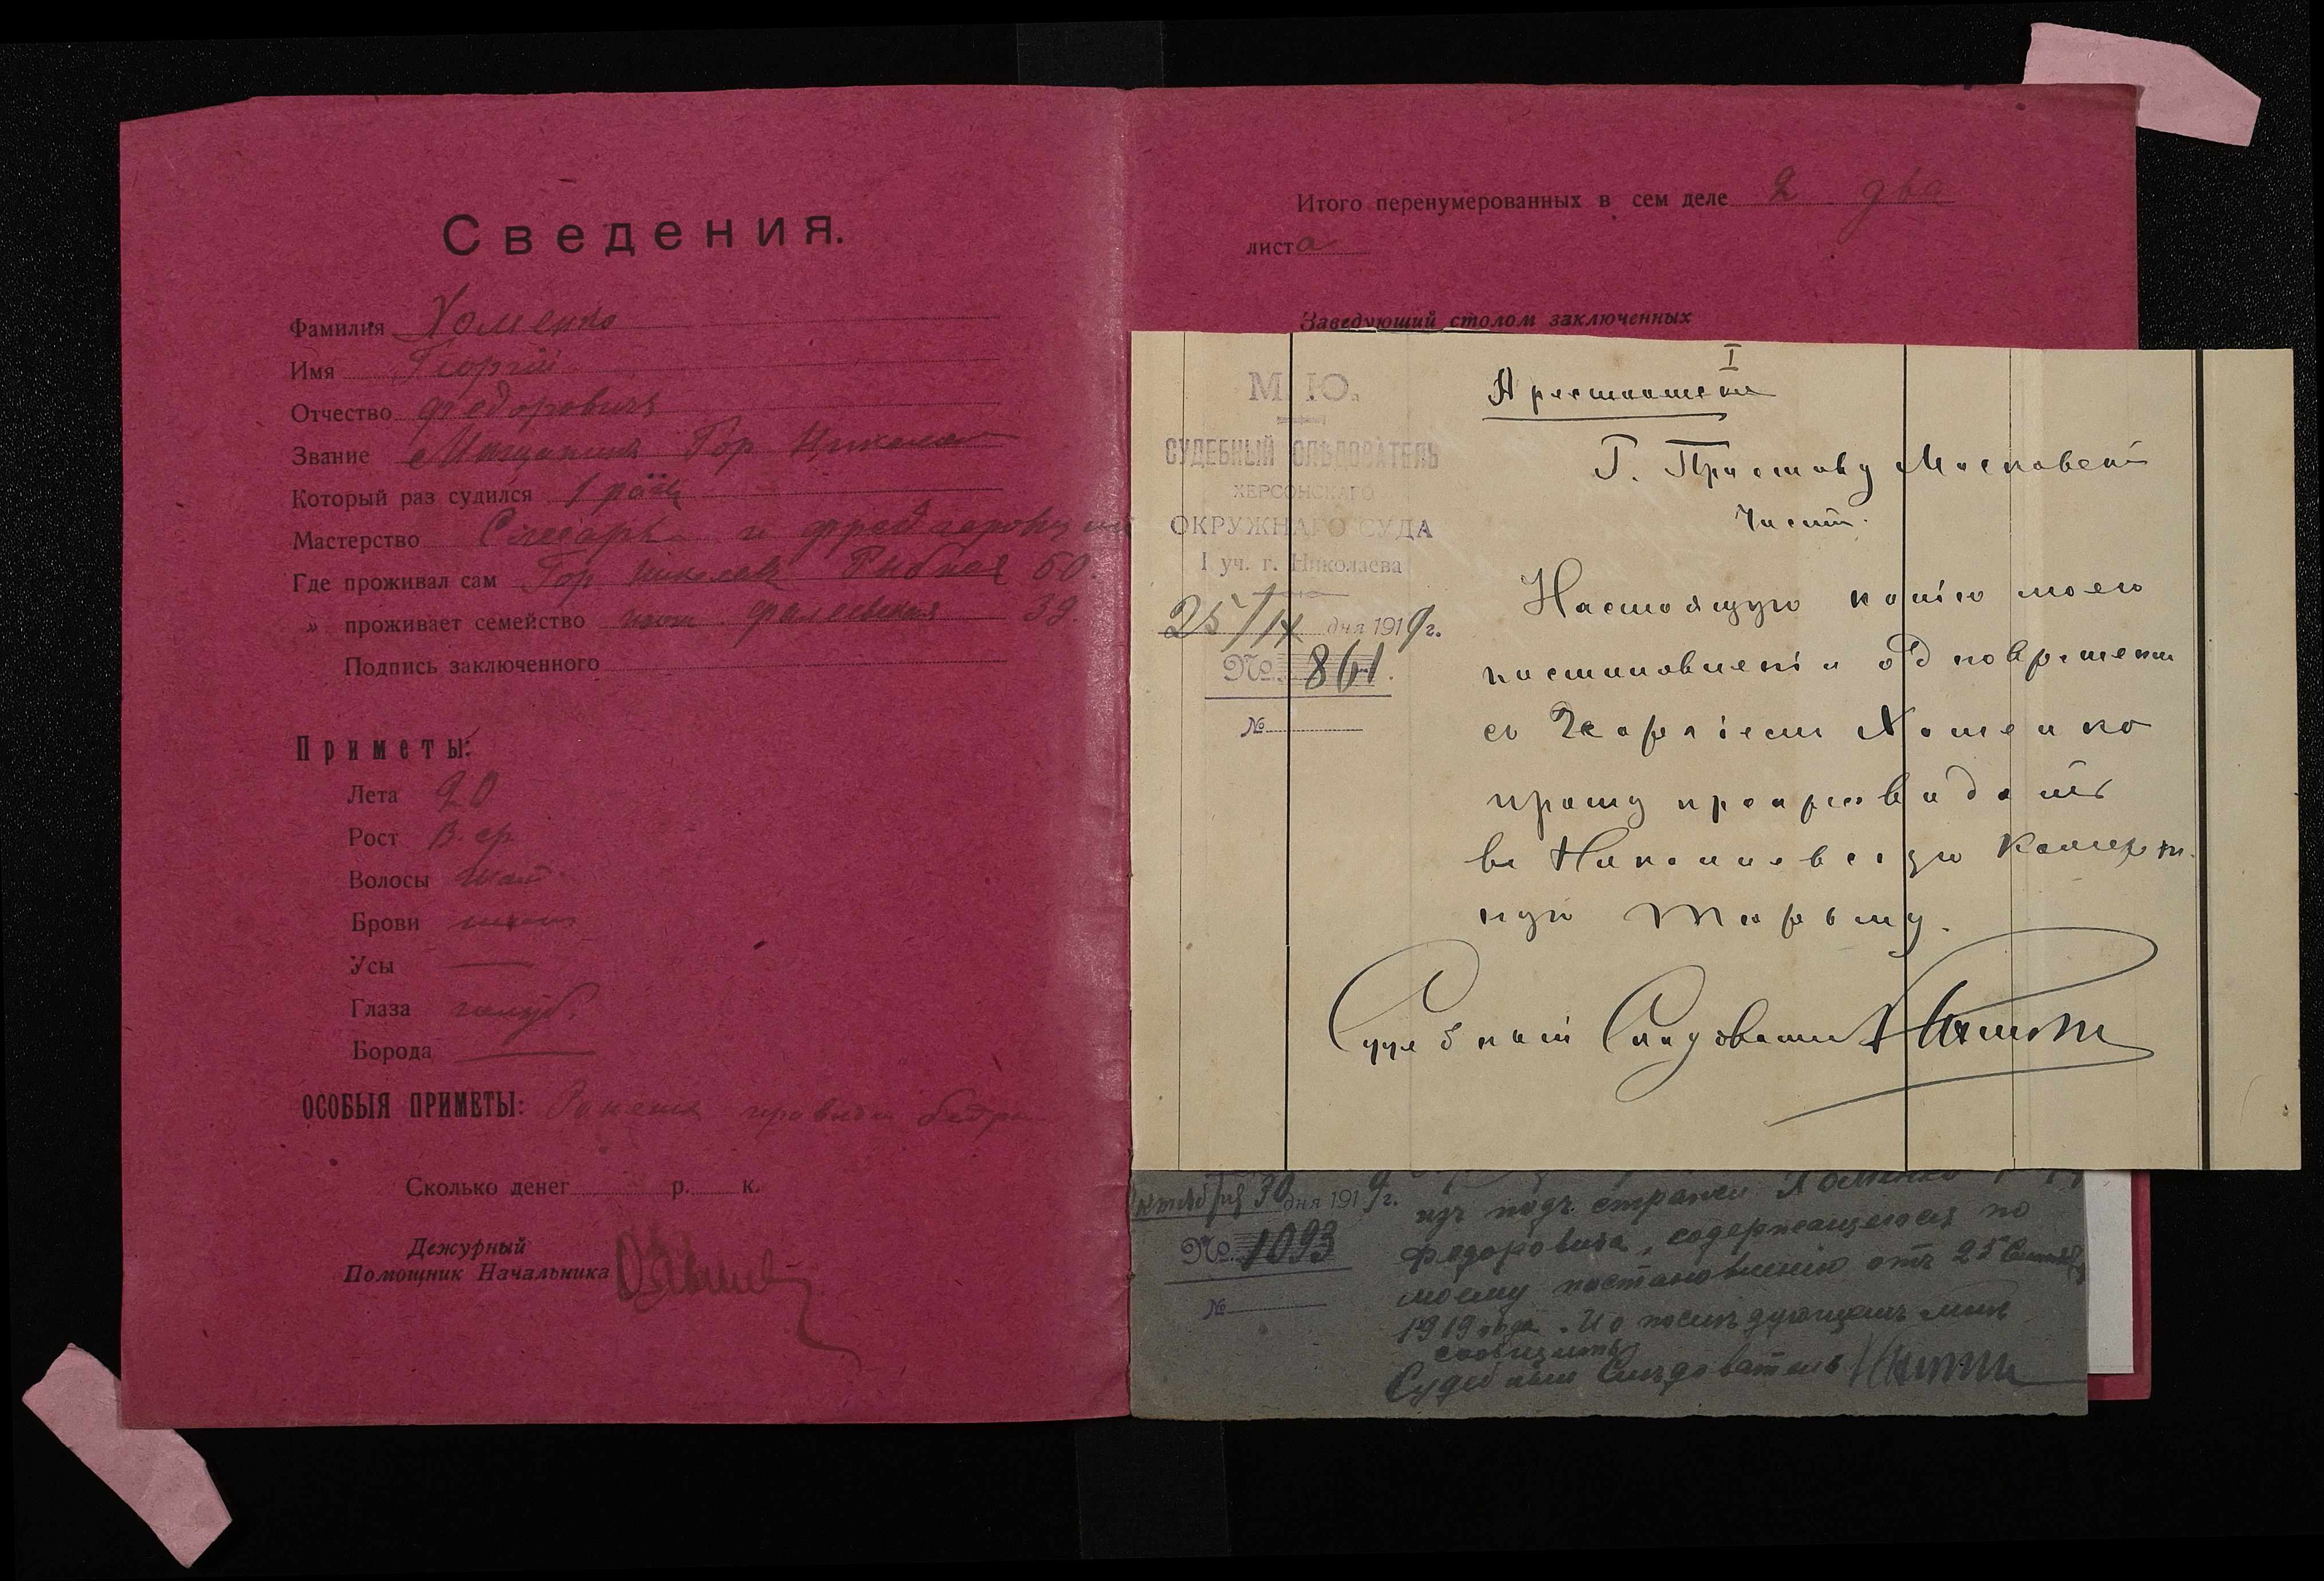 Сведения.
Фамилия Хоменко
Имя Георгій
Отчество Федоровичъ
Звание Мещанинъ Гор Николаев
Который раз судился 1 разъ
Мастерство Слесарь и
Где проживал сам Гор Николаев Рыбная 60.
» проживает семейство 39.
Подпись заключенного
Приметы:
Лета 20
Рост В. ср
Волосы шат
Брови
Усы —
Глаза голуб.
Борода —
ОСОБЫЯ ПРИМЕТЫ: Раненъ
Сколько денег р. к.
Дежурный
Помощник Начальника
Итого перенумерованных в сем деле 2 два
листа
Заведующий столом заключенных
М. Ю.
СУДЕБНЫЙ СЛѢДОВАТЕЛЬ
ХЕРСОНСКАГО
ОКРУЖНАГО СУДА
1 уч. г. Николаева
25/IX дня 1919г.
№ 861.
№
I
Арестантское
Г. Приставу Московской
части.
Настоящую копію моего
постановленія одновременно
съ Георгіемъ Хоменко
прошу препроводить
въ Николаевскую Каторж-
ную тюрьму.
Судебный Слѣдователь
Октября 30 дня 1919г.
№ 1093
№
изъ подъ стражи Хоменко
Федоровича, содержащегося по
моему постановленію отъ 25 Сентября
1919 года. И о послѣдующемъ мнѣ
сообщить
Судебный Слѣдователь